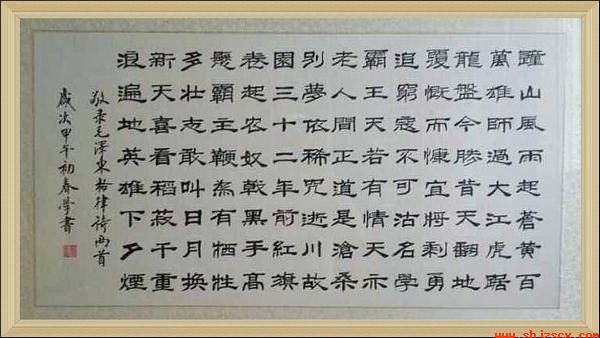 鐘山風雨起蒼黃百
萬雄師過大江虎踞
龍盤今勝昔天翻地
覆慨而慷宜將剩勇
追窮寇不可沽名學
霸王天若有情天亦
老人間正道是滄桑
別夢依稀咒逝川故
園三十二年前紅旗
卷起农奴戟黑手高
懸霸主鞭為有牺牲
多壯志敢叫日月換
新天喜看稻菽千重
浪遍地英雄下夕煙
敬录毛澤東格律詩兩首
歲次甲午初春學書